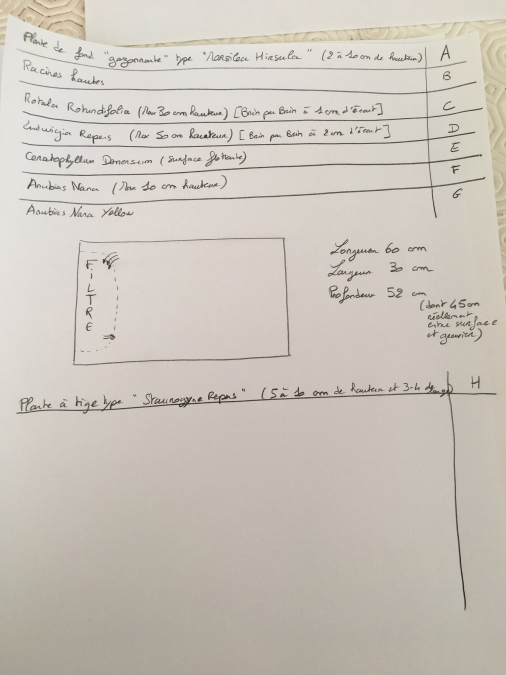 Plante de fond "gazonnante" type "Marsilea Hirsuta" (2 à 10 cm de hauteur) A
Racines hautes B
Rotala Rotundifolia (Max 30 cm hauteur) [Brin par Brin à 1 cm d'écart] C
Ludwigia Repens (Max 50 cm hauteur) [Brin par Brin à 2 cm d'écart] D
Ceratophyllum Demersum (Surface flottante) E
Anubias Nana (Max 10 cm hauteur) F
Anubias Nana Yellow G
FILTRE
Longueur 60 cm
Largeur 30 cm
Profondeur 52 cm
(dont 45 cm
réellement
entre surface
et gravier)
Plante à tige type "Staurogyne Repens" (5 à 10 cm de hauteur et 3-4 de large) H